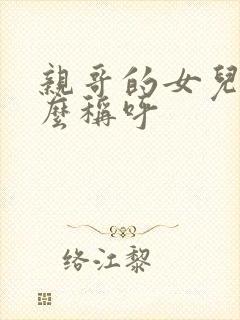 親哥的女兒
麼稱呼
络江黎